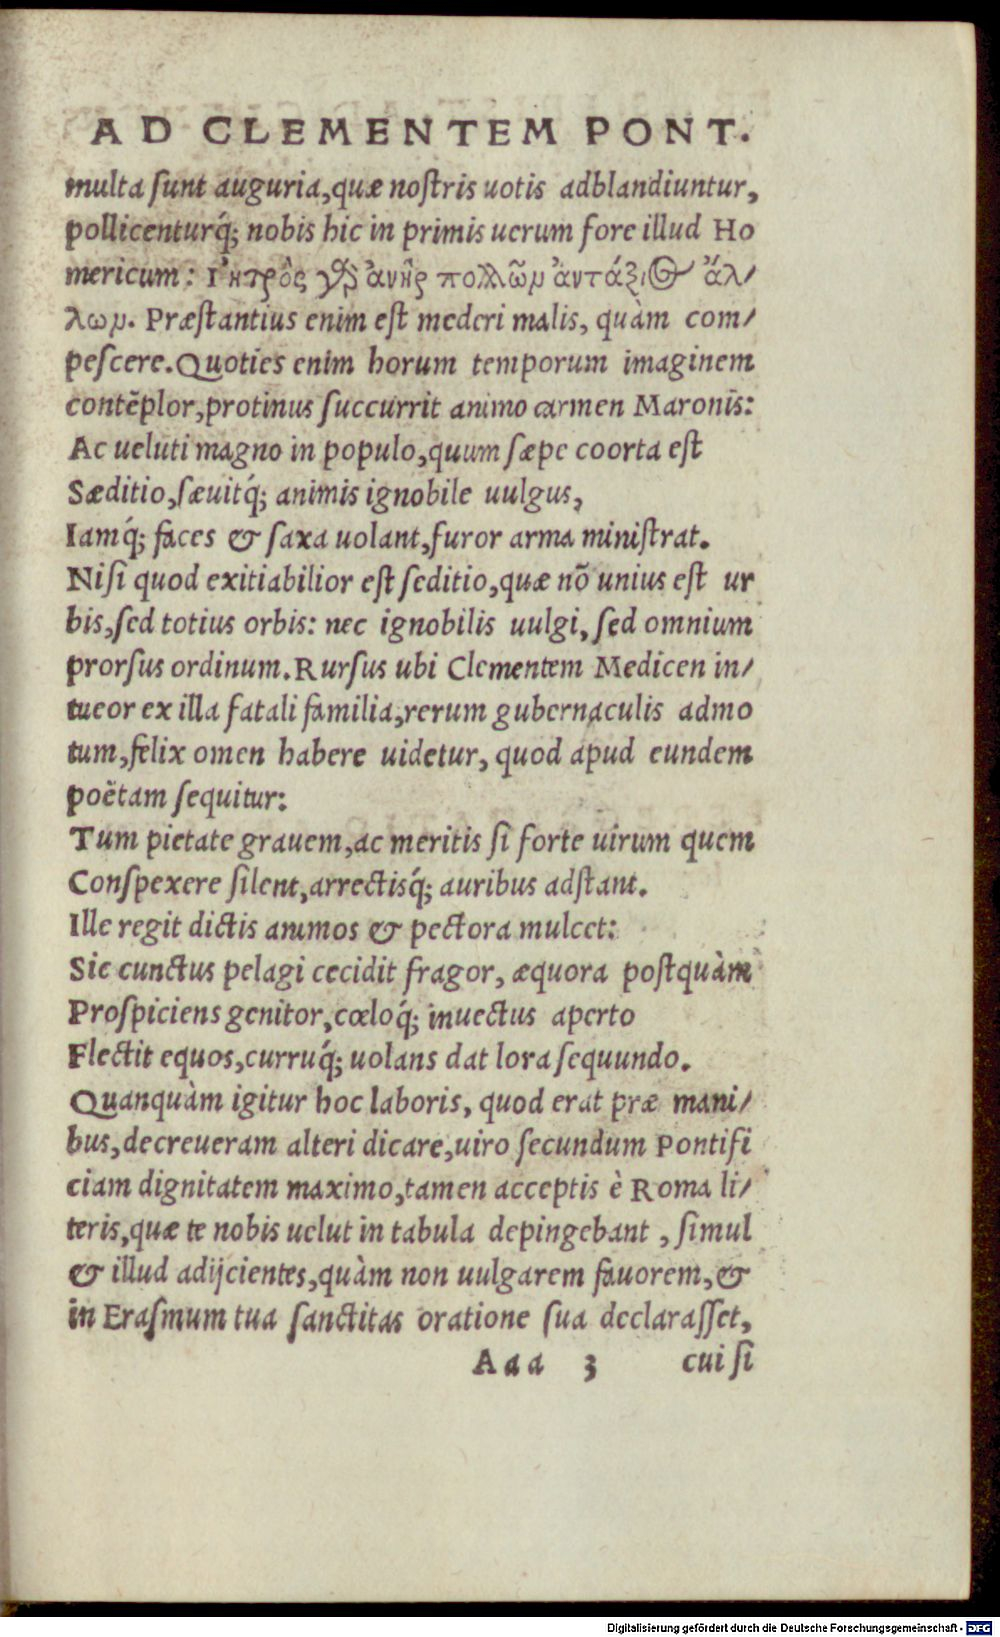 AD CLEMENTEM PONT.
multa sunt auguria, quæ nostris uotis adblandiuntur,
pollicenturq́; nobis hic in primis uerum fore illud Ho
mericum: Ἰητρὸς γὰρ ἀνὴρ πολλῶμ ἀντάξιος ἄλ/
λωμ. Præstantius enim est mederi malis, quàm com/
pescere. Quoties enim horum temporum imaginem
contēplor, protinus succurrit animo carmen Maronis:
Ac ueluti magno in populo, quum sæpe coorta est
Sæditio, sæuitq́; animis ignobile uulgus,
Iamq́; faces & saxa uolant, furor arma ministrat.
Nisi quod exitiabilior est seditio, quæ nō unius est ur
bis, sed totius orbis: nec ignobilis uulgi, sed omnium
prorsus ordinum. Rursus ubi Clementem Medicen in/
tueor ex illa fatali familia, rerum gubernaculis admo
tum, felix omen habere uidetur, quod apud eundem
poëtam sequitur:
Tum pietate grauem, ac meritis si forte uirum quem
Conspexere silent, arrectisq́; auribus adstant.
Ille regit dictis animos & pectora mulcet:
Sic cunctus pelagi cecidit fragor, æquora postquàm
Prospiciens genitor, cœloq́; inuectus aperto
Flectit equos, curruq́; uolans dat lora sequundo.
Quanquàm igitur hoc laboris, quod erat præ mani/
bus, decreueram alteri dicare, uiro secundum Pontifi
ciam dignitatem maximo, tamen acceptis è Roma li/
teris, quæ te nobis uelut in tabula depingebant, simul
& illud adijcientes, quàm non uulgarem fauorem, &
in Erasmum tua sanctitas oratione sua declarasset,
Aaa 3 cui si
Digitalisierung gefördert durch die Deutsche Forschungsgemeinschaft - DFG